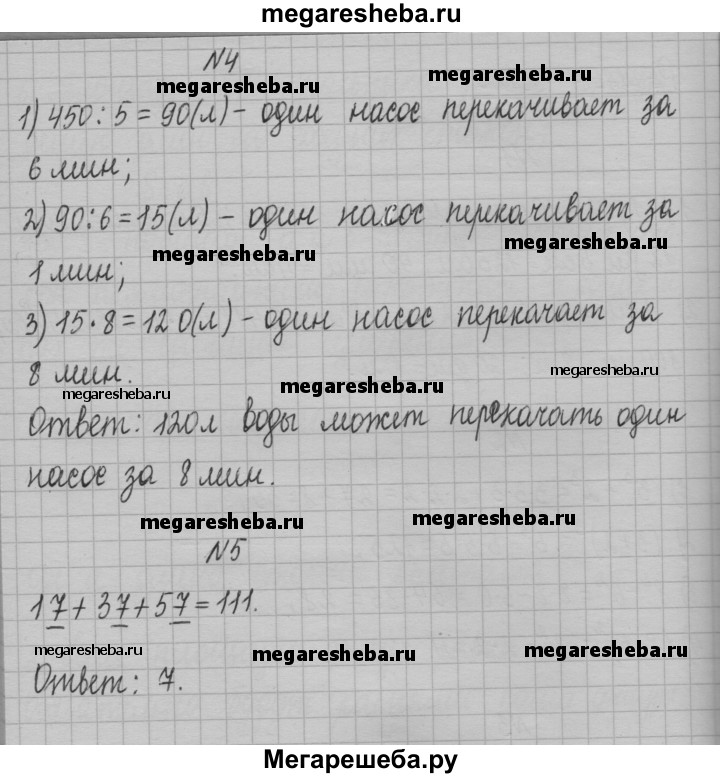 megaresheba.ru
N4
megaresheba.ru
megaresheba.ru
1) 450 : 5 = 90 (л) - один насос перекачивает за
6 мин;
2) 90 : 6 = 15 (л) - один насос перекачивает за
megaresheba.ru
megaresheba.ru
1 мин;
3) 15 · 8 = 120 (л) - один насос перекачает за
8 мин.
megaresheba.ru
megaresheba.ru
megaresheba.ru
Ответ: 120 л воды может перекачать один
насос за 8 мин.
megaresheba.ru
megaresheba.ru
N5
17 + 37 + 57 = 111.
megaresheba.ru
megaresheba.ru
megaresheba.ru
Ответ: 7.
Мегарешеба.ру